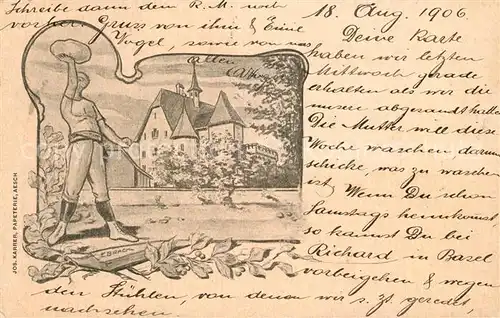 18. Aug. 1906
Deine Karte
haben wir letzten
Mittwoch gerade
erhalten als wir die
unsere abgesandt hatten
Die Mutter will diese
Woche waschen darum
schicke, was zu waschen
ist. Wenn Du schon
Samstags heimkommst
so kannst Du bei
Richard in Basel
vorbeigehen & wegen
den Stühlen, von denen wir s. Zt. geredet,
nachsehen.
Schreibe dann dem R. M. noch
vorher. Gruss von ihm & Eine
Vogel, sowie von uns
allen
JOS. KARRER, PAPETERIE, AESCH